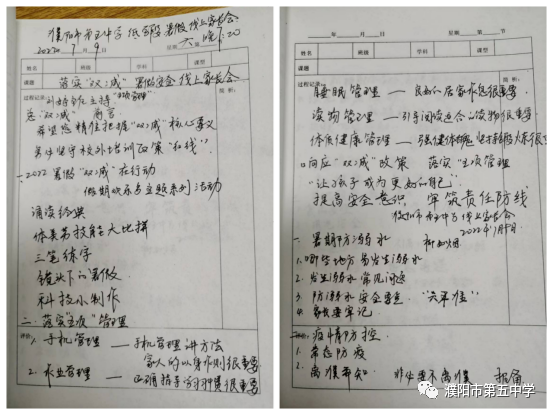 濮阳市第五中学 低年级暑假线上家长会
2022年7月9日 星期六 晚6:20
姓名 班级 学科 课型
课题 落实"双减" 暑假安全 线上家长会
过程记录:
主持
"双减"
希望您精准把握"双减"核心要义
坚守校外培训政策"红线"
一、2022暑假"双减"在行动
假期快乐与主题系列活动
诵读经典
体美劳技能大比拼
三笔练字
镜头下的暑假
科技小制作
二、落实"五项"管理
评价:
1、手机管理 — 手机管理讲方法
家人的以身作则很重要
2、作业管理 — 正确指导学习习惯很重要
年 月 日 星期 第 节
姓名 班级 学科 课型
课题
过程记录:
睡眠管理 — 良好的居家作息很重要
读物管理 — 引导阅读适合的读物很重要
体质健康管理 — 强健体魄 坚持锻炼大家很
响应"双减"政策 落实"五项管理
"让孩子成为更好的自己"
提高安全意识, 牢筑责任防线
2022年7月9日
一、暑期防溺水
1.哪些地方易发生溺水
2.发生溺水常见问题
3.防溺水安全要点 "六不准"
4.家长要牢记
二、疫情防控
评价:
1.常态防疫
2.离濮要知 非必要不离濮 报备
濮阳市第五中学